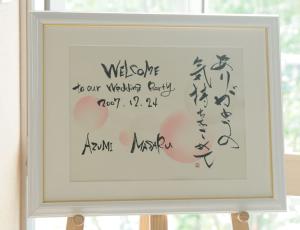 WELCOME
to our Wedding Party
2007.12.24
AZUMI MASARU
ありがとうの
気持ちをこめて